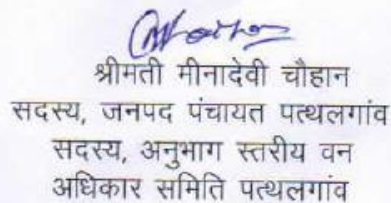 श्रीमती मीनादेवी चौहान
सदस्य, जनपद पंचायत पत्थलगांव
सदस्य, अनुभाग स्तरीय वन
अधिकार समिति पत्थलगांव